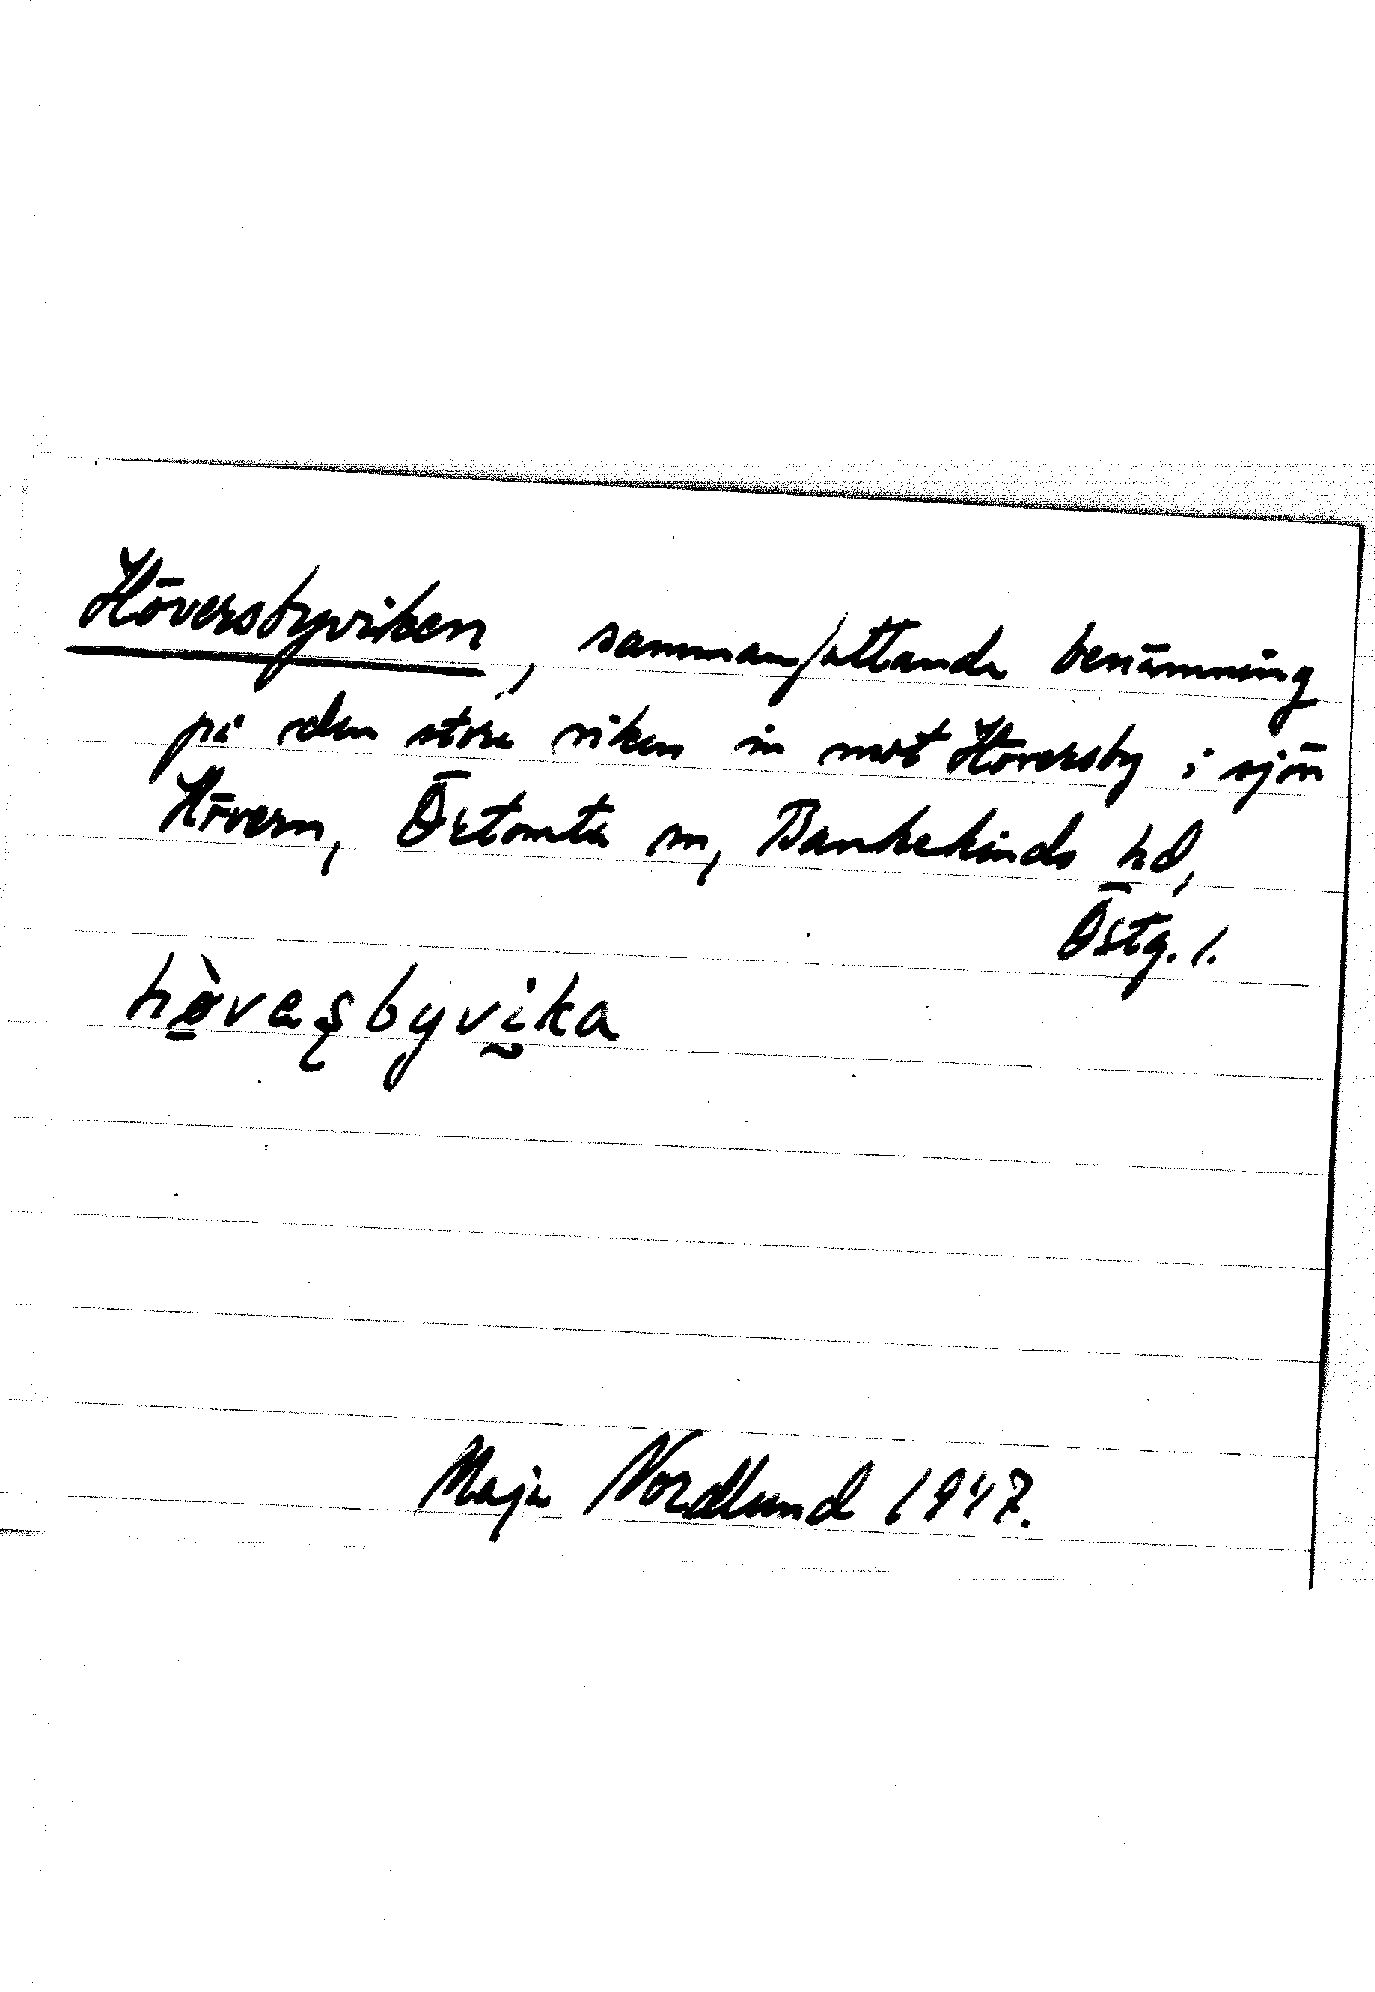 Höversbyviken, sammanfattande benämning
på den stora viken in mot Höversby i sjön
Hövern, Örtomta sn, Bankekinds hd,
Östg. l.
hö̀vaʂbyvika
Maja Nordlund 1947.